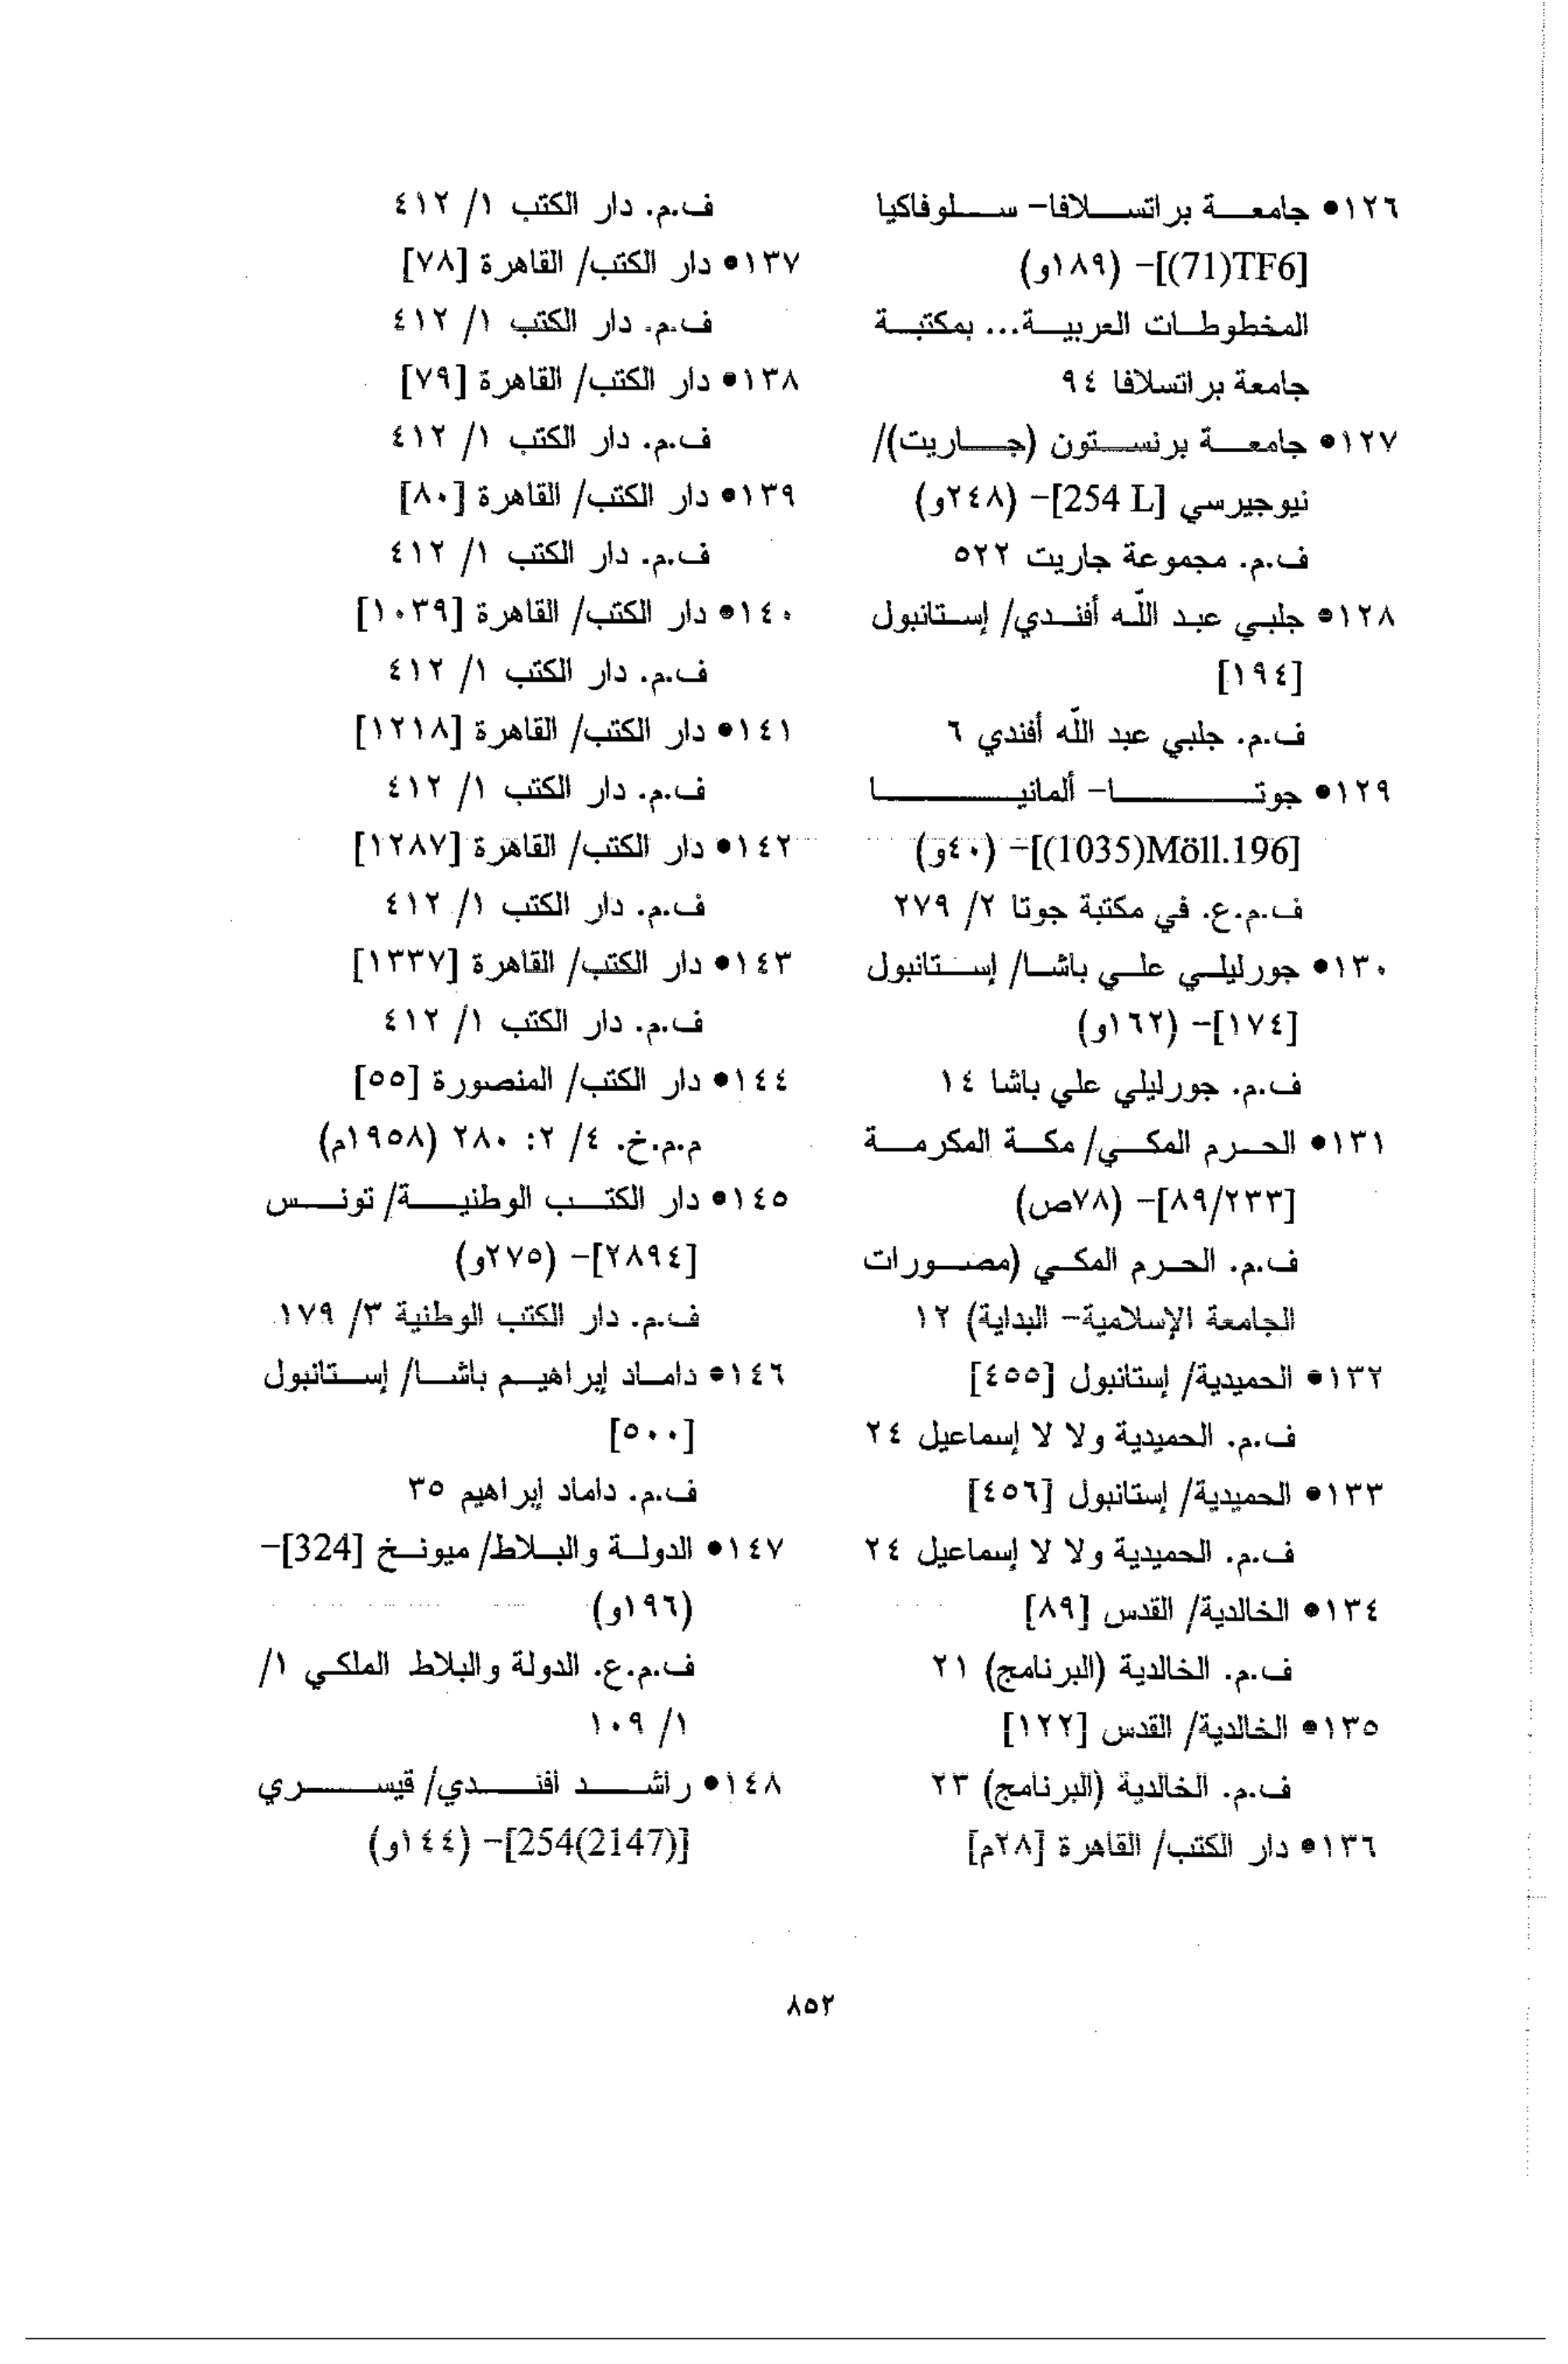 ١٢٦• جامعة براتسلافا- سلوفاكيا
[TF6(71)]- (١٨٩و)
المخطوطات العربية... بمكتبة
جامعة براتسلافا ٩٤
١٢٧• جامعة برنستون (جاريت)/
نيوجيرسي [254 L]- (٢٤٨و)
ف.م. مجموعة جاريت ٥٢٢
١٢٨• جلبي عبد اللّه أفندي/ إستانبول
[١٩٤]
ف.م. جلبي عبد اللّه أفندي ٦
١٢٩• جوتا- ألمانيا
[Möll.196(1035)]- (٤٠و)
ف.م.ع. في مكتبة جوتا ٢/ ٢٧٩
١٣٠• جورليلي علي باشا/ إستانبول
[١٧٤]- (١٦٢و)
ف.م. جورليلي علي باشا ١٤
١٣١• الحرم المكي/ مكة المكرمة
[٨٩/٢٣٣]- (٧٨ص)
ف.م. الحرم المكي (مصورات
الجامعة الإسلامية- البداية) ١٢
١٣٢• الحميدية/ إستانبول [٤٥٥]
ف.م. الحميدية ولا لا إسماعيل ٢٤
١٣٣• الحميدية/ إستانبول [٤٥٦]
ف.م. الحميدية ولا لا إسماعيل ٢٤
١٣٤• الخالدية/ القدس [٨٩]
ف.م. الخالدية (البرنامج) ٢١
١٣٥• الخالدية/ القدس [١٢٢]
ف.م. الخالدية (البرنامج) ٢٣
١٣٦• دار الكتب/ القاهرة [٢٨م]
ف.م. دار الكتب ١/ ٤١٢
١٣٧• دار الكتب/ القاهرة [٧٨]
ف.م. دار الكتب ١/ ٤١٢
١٣٨• دار الكتب/ القاهرة [٧٩]
ف.م. دار الكتب ١/ ٤١٢
١٣٩• دار الكتب/ القاهرة [٨٠]
ف.م. دار الكتب ١/ ٤١٢
١٤٠• دار الكتب/ القاهرة [١٠٣٩]
ف.م. دار الكتب ١/ ٤١٢
١٤١• دار الكتب/ القاهرة [١٢١٨]
ف.م. دار الكتب ١/ ٤١٢
١٤٢• دار الكتب/ القاهرة [١٢٨٧]
ف.م. دار الكتب ١/ ٤١٢
١٤٣• دار الكتب/ القاهرة [١٣٣٧]
ف.م. دار الكتب ١/ ٤١٢
١٤٤• دار الكتب/ المنصورة [٥٥]
م.م.خ. ٤/ ٢: ٢٨٠ (١٩٥٨م)
١٤٥• دار الكتب الوطنية/ تونس
[٢٨٩٤]- (٢٧٥و)
ف.م. دار الكتب الوطنية ٣/ ١٧٩
١٤٦• داماد إبراهيم باشا/ إستانبول
[٥٠٠]
ف.م. داماد إبراهيم ٣٥
١٤٧• الدولة والبلاط/ ميونخ [324]-
(١٩٦و)
ف.م.ع. الدولة والبلاط الملكي ١/
١/ ١٠٩
١٤٨• راشد أفندي/ قيسري
[254(2147)]- (١٤٤و)
٨٥٢